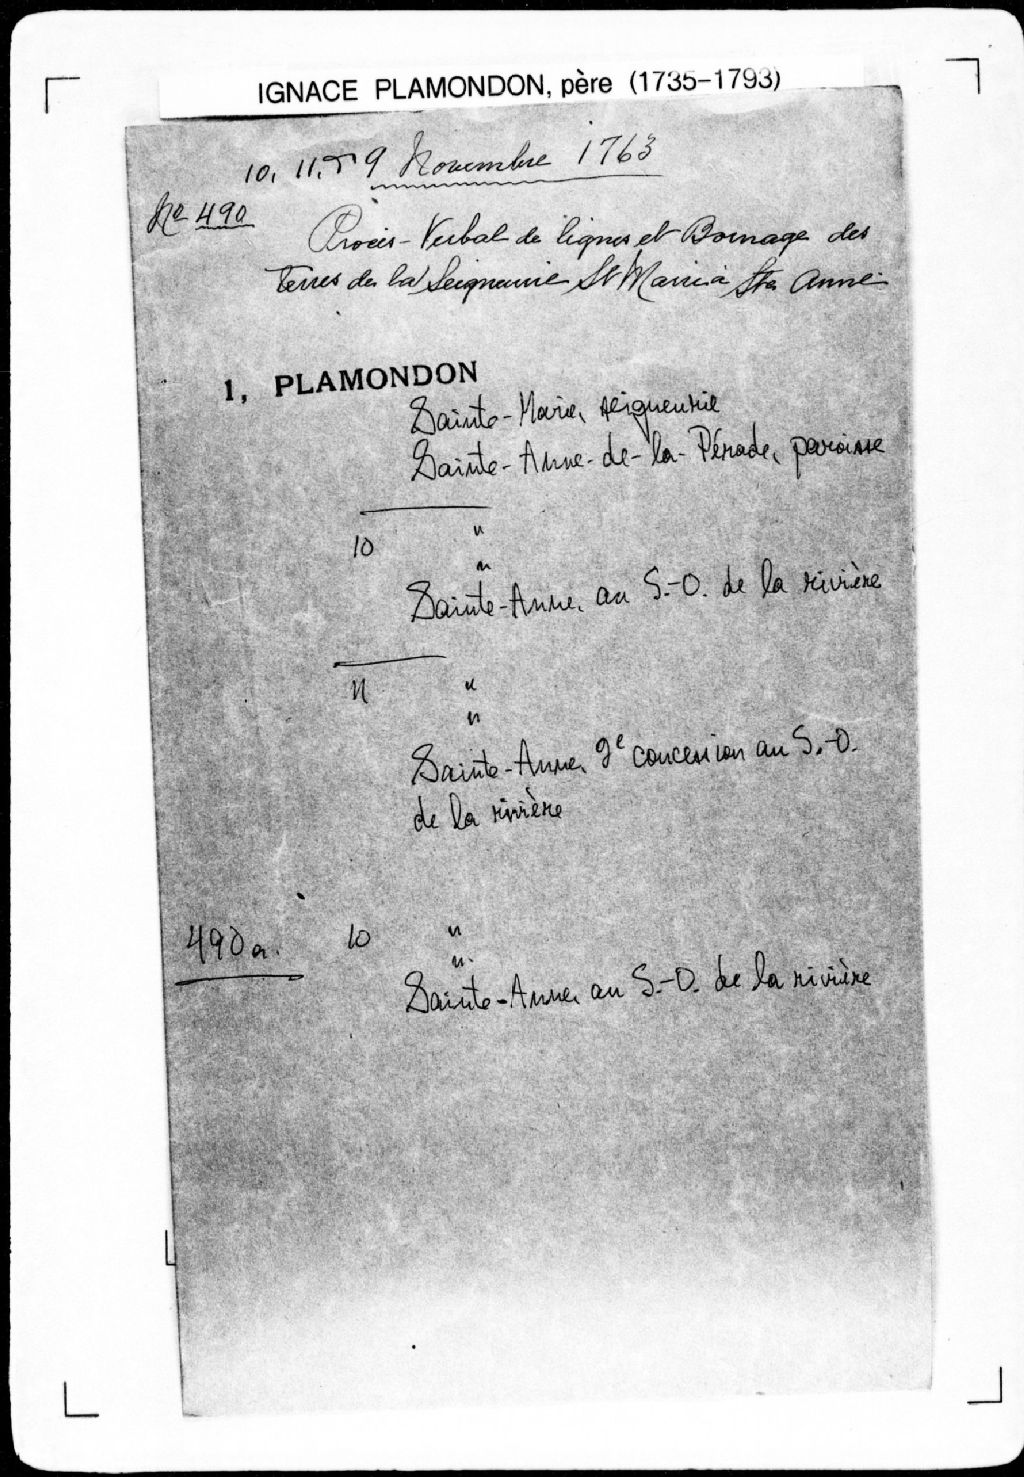 IGNACE PLAMONDON, père (1735-1793)
10, 11, & 9 Novembre 1763
No 490
Procès-Verbal de lignes et Bornage des
terres de la Seigneurie St Marie à Ste Anne
1, PLAMONDON
Sainte-Marie, seigneurie
Sainte-Anne-de-la-Pérade, paroisse
10 "
"
Sainte-Anne, au S.-O. de la rivière
11 "
"
Sainte-Anne, 2e concession au S.-O.
de la rivière
490a. 10 "
"
Sainte-Anne, au S.-O. de la rivière